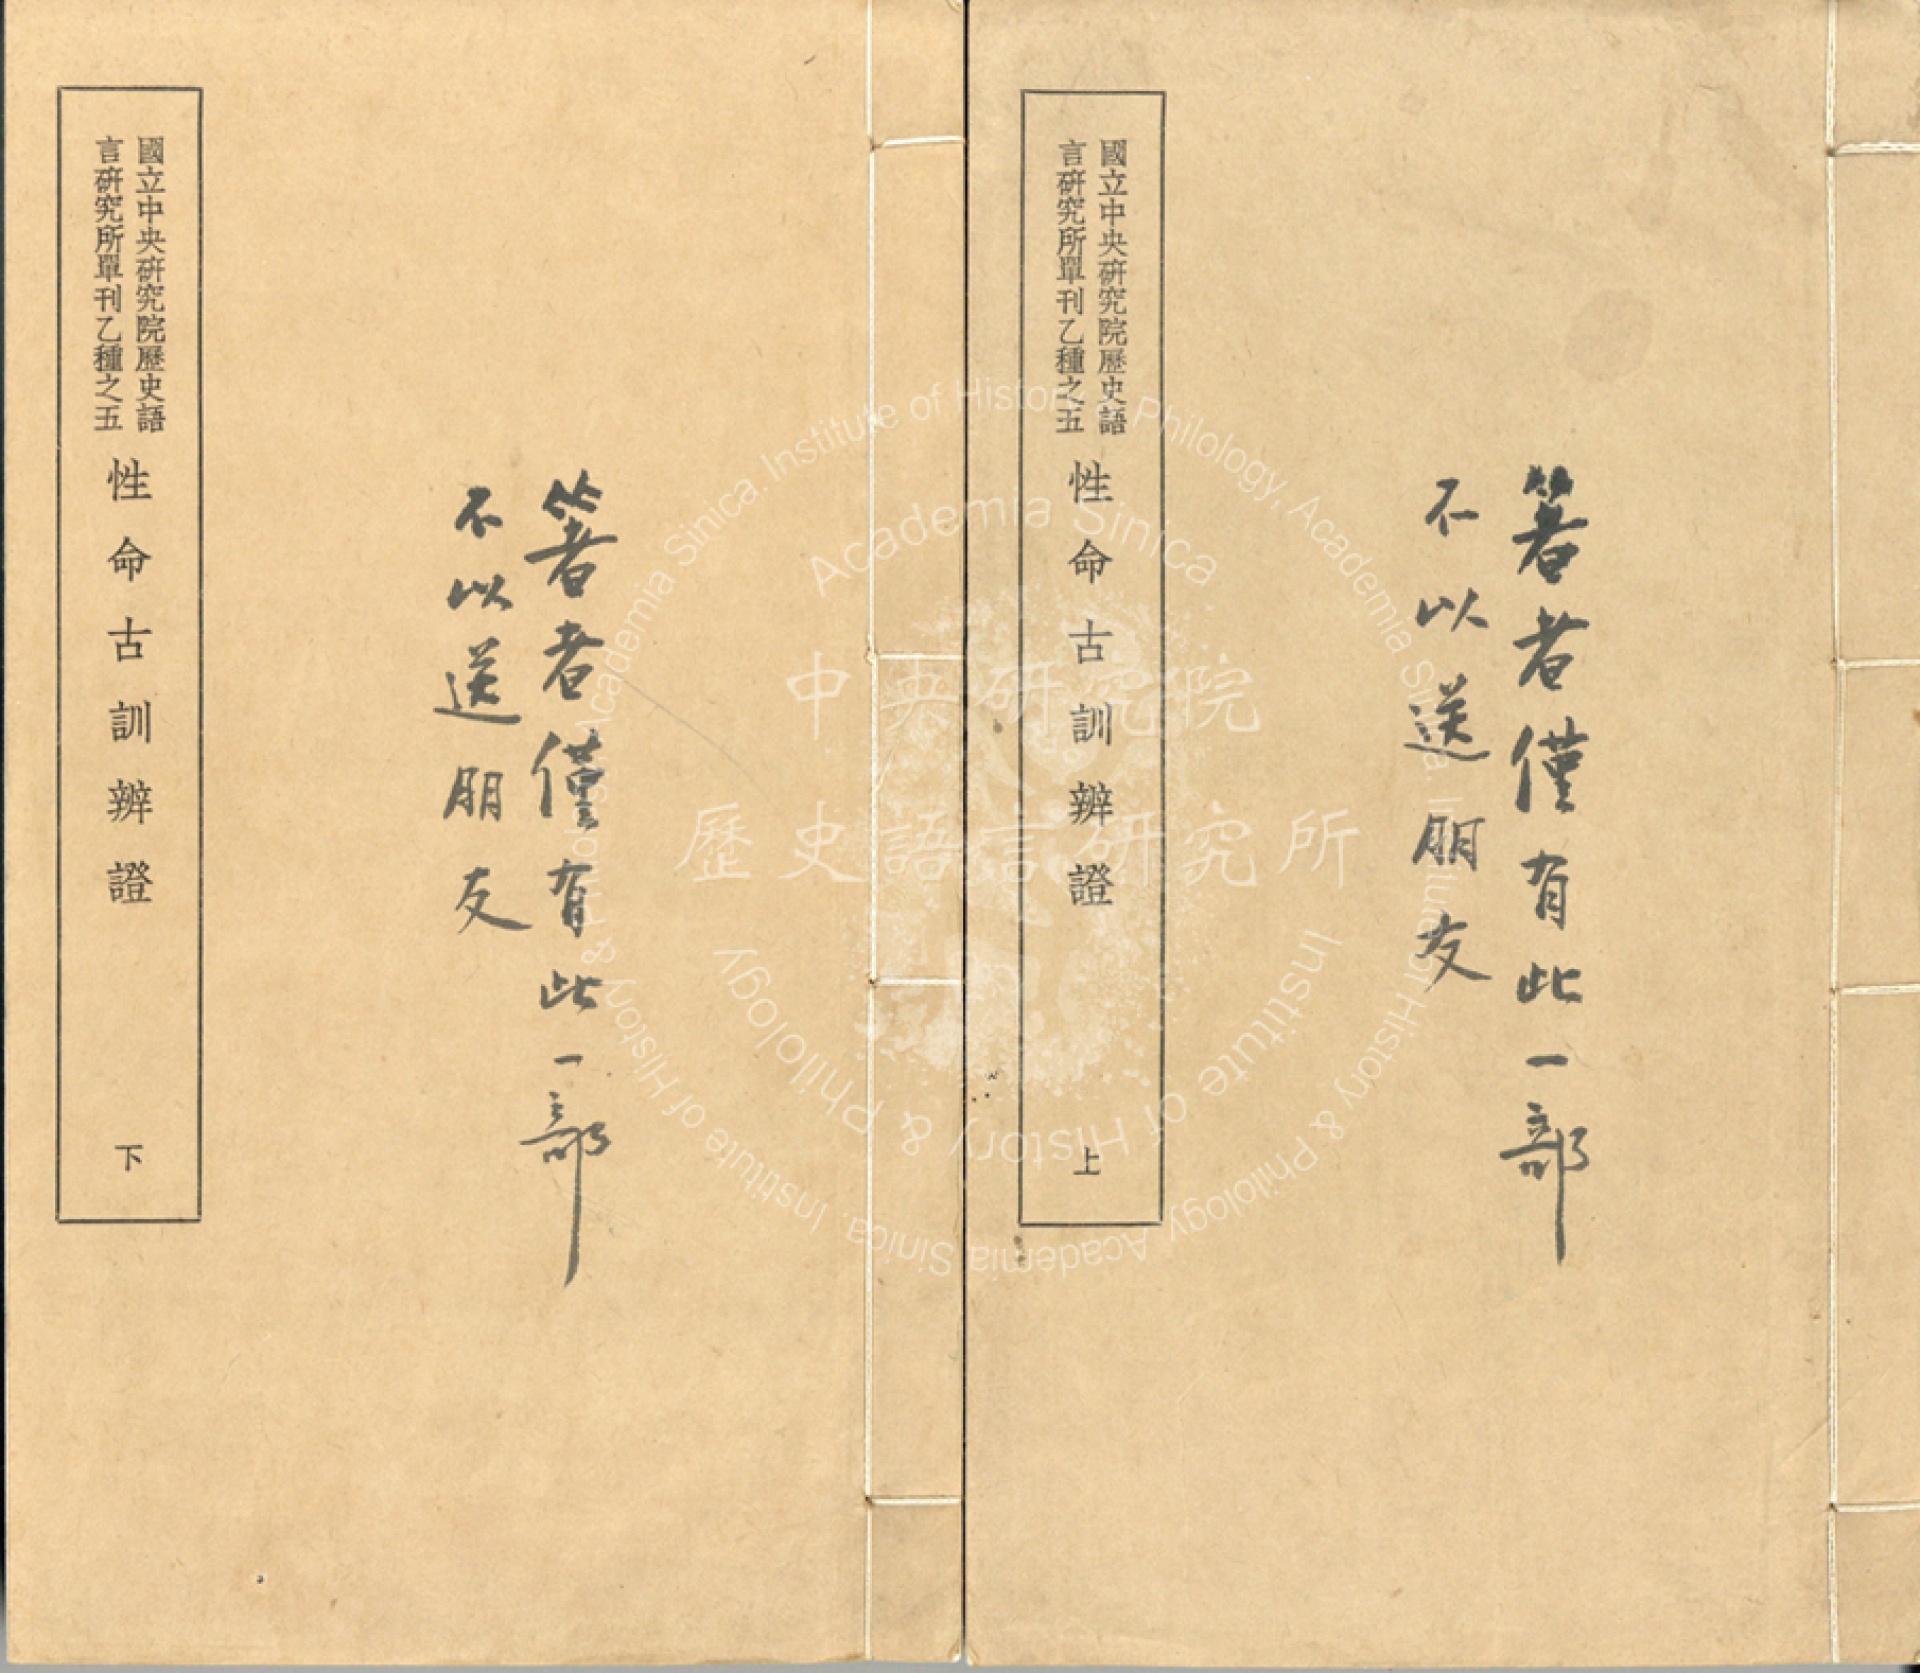 國立中央研究院歷史語
言研究所單刊乙種之五
性命古訓辨證
上
著者僅有此一部
不以送朋友
國立中央研究院歷史語
言研究所單刊乙種之五
性命古訓辨證
下
著者僅有此一部
不以送朋友
中央研究院
歷史語言研究所
Academia Sinica
Institute of History & Philology
Academia Sinica. Institute of History & Philology, Academia Sinica. Institute of History & Philology Academia Sinica. Institute of History & Philology